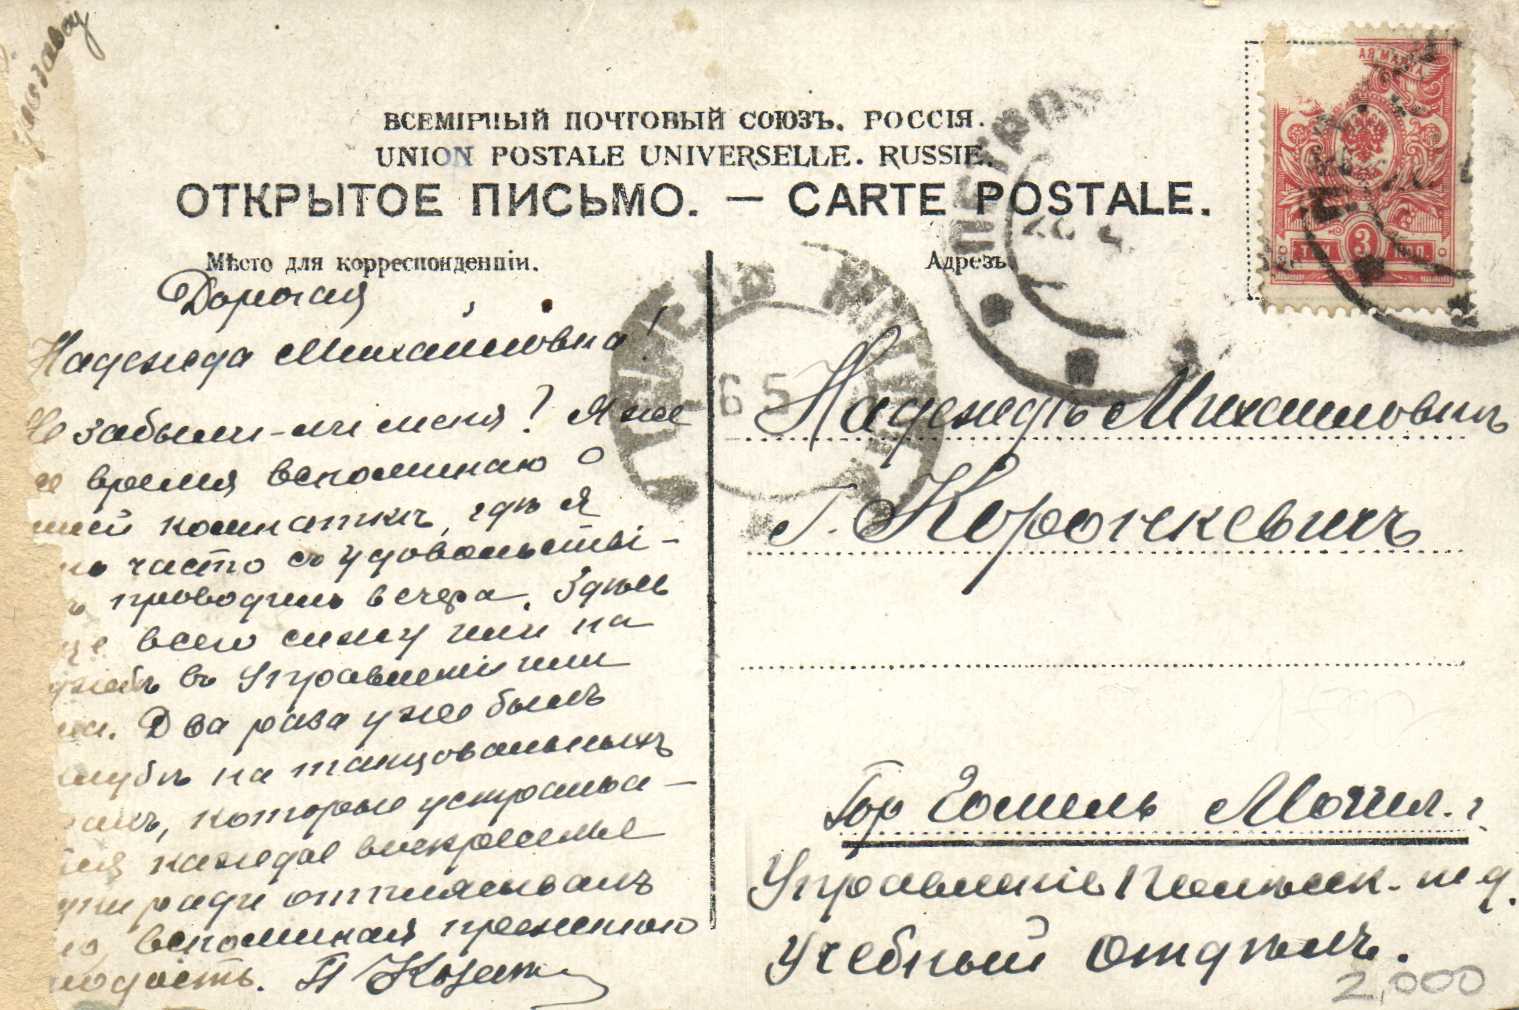 ВСЕМІРНЫЙ ПОЧТОВЫЙ СОЮЗЪ. РОССІЯ.
UNION POSTALE UNIVERSELLE. RUSSIE.
ОТКРЫТОЕ ПИСЬМО. — CARTE POSTALE.
Мѣсто для корреспонденціи.
Дорогая
Надежда Михайловна!
Не забыли-ли меня? Я же
время вспоминаю о
комнаткѣ, гдѣ я
часто съ удовольстві-
проводилъ вечера. Здѣсь
всего сижу или на
въ Управленіи или
Два раза уже былъ
клубѣ на танцовальныхъ
которые устраива-
каждое воскресенье
ради отплясывалъ
вспоминая прежнюю
молодость. П
Адресъ
Надеждѣ Михайловнѣ
Г. Коронкевичъ
Гор Гомель Могил. г.
Управленіе Полѣсск. ж д.
Учебный Отдѣлъ.
ТРИ 3 КОП.
65
2,000